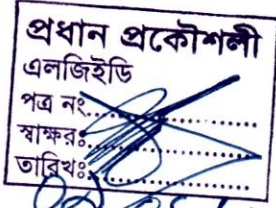 প্রধান প্রকৌশলী
এলজিইডি
পত্র নং..................
স্বাক্ষরঃ..................
তারিখঃ..................